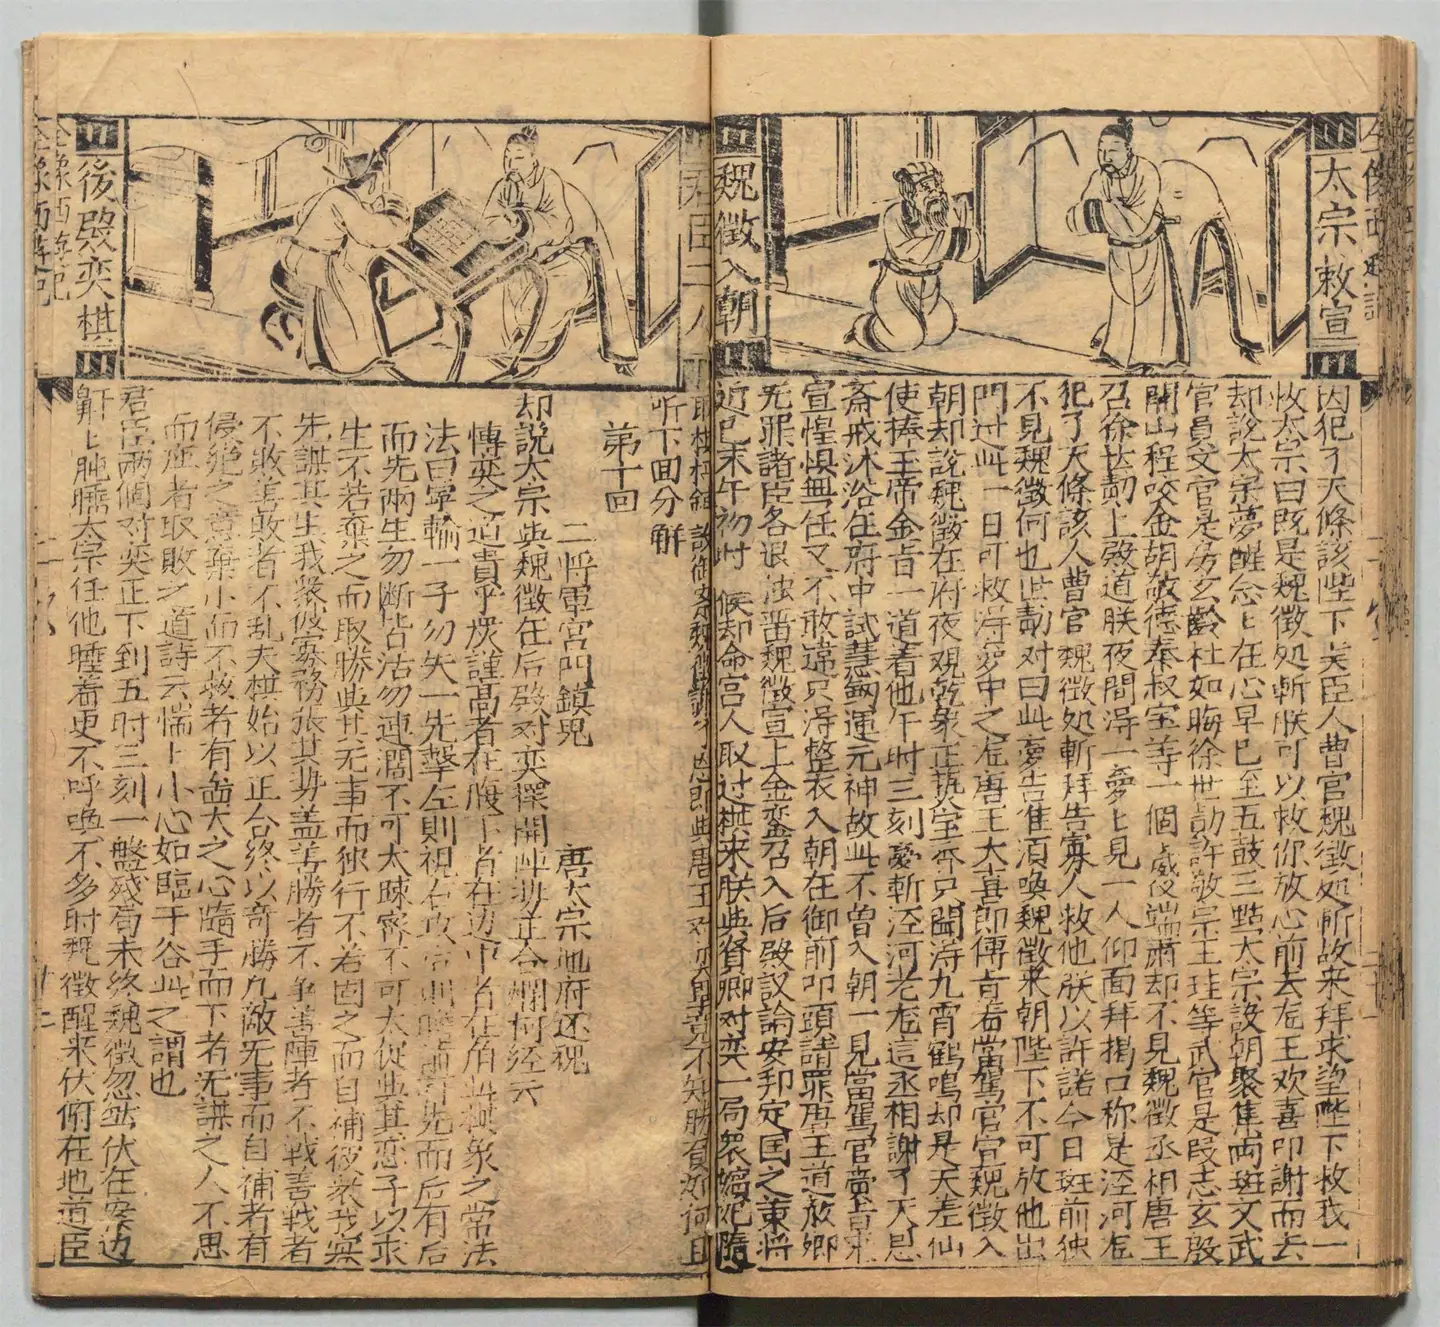 全像西遊記
太宗敕宣
魏徵入朝
因犯了天條該陛下矣臣人曹官魏徵処斬故来拜求望陛下救我一
太宗曰既是魏徵処斬朕可以救你放心前去龙王欢喜叩謝而去
却説太宗夢醒念〻在心早已至五鼓三點太宗設朝聚集両班文武
官員文官是房玄齡杜如晦徐世勣許敬宗王珪等武官是段志玄殷
開山程咬金胡敬德秦叔宝等一個〻威儀端肅却不見魏徵丞相唐王
召徐世勣上殿道朕夜間淂一夢〻見一人仰面拜揭口称是涇河龙
犯了天條該人曹官魏徵処斬拜告寡人救他朕以許諾今日班前独
不見魏徵何也世勣对曰此夢告准須喚魏徵来朝陛下不可放他出
門过此一日可救淂夢中之龙唐王大喜即傳㫖着當駕官宣魏徵入
朝却説魏徵在府夜观乾象正爇宝香只聞淂九霄鶴唳却是天差仙
使捧玉帝金㫖一道着他午时三刻夢斬涇河老龙這丞相謝了天恩
斎戒沐浴在府中試慧劍運元神故此不曽入朝一見當駕官賫㫖来
宣惶惧無任又不敢違只淂整衣入朝在御前叩頭請罪唐王道放卿
无罪諸臣各退独畄魏徵宣上金鑾召入后殿議論安邦定国之䇿将
近巳末午初时候却命宫人取过棋来朕与賢卿对奕一局衆嬪妃隨
君臣二人
後殿奕棋
听下囬分解
第十回
二将軍宫門鎮鬼　唐太宗地府还魂
却説太宗与魏徵在后殿对奕摆開陣势正合爛柯経云
慱奕之道貴乎炭謹髙者在腹下者在边中者在角此棋家之常法
法曰寧輸一子勿失一先擊左則視右攻后則瞻前有先而后有后
而先両生勿断皆活勿連濶不可太踈密不可太促与其恋子以求
生不若棄之而取勝与其无事而独行不若固之而自補彼衆我寡
先謀其生我衆彼寡務張其势盖善勝者不争善陣者不战善戦者
不敗善敗者不乱夫棋始以正合終以奇勝凡敵无事而自補者有
侵絶之意棄小而不救者有啚大之心隨手而下者无謀之人不思
而应者取敗之道詩云惴〻小心如臨于谷此之謂也
君臣両個对奕正下到五时三刻一盤残局未終魏徵忽然伏在案边
鼾〻盹睡太宗任他睡着更不呼喚不多时魏徵醒来伏俯在地道臣
全像西遊記